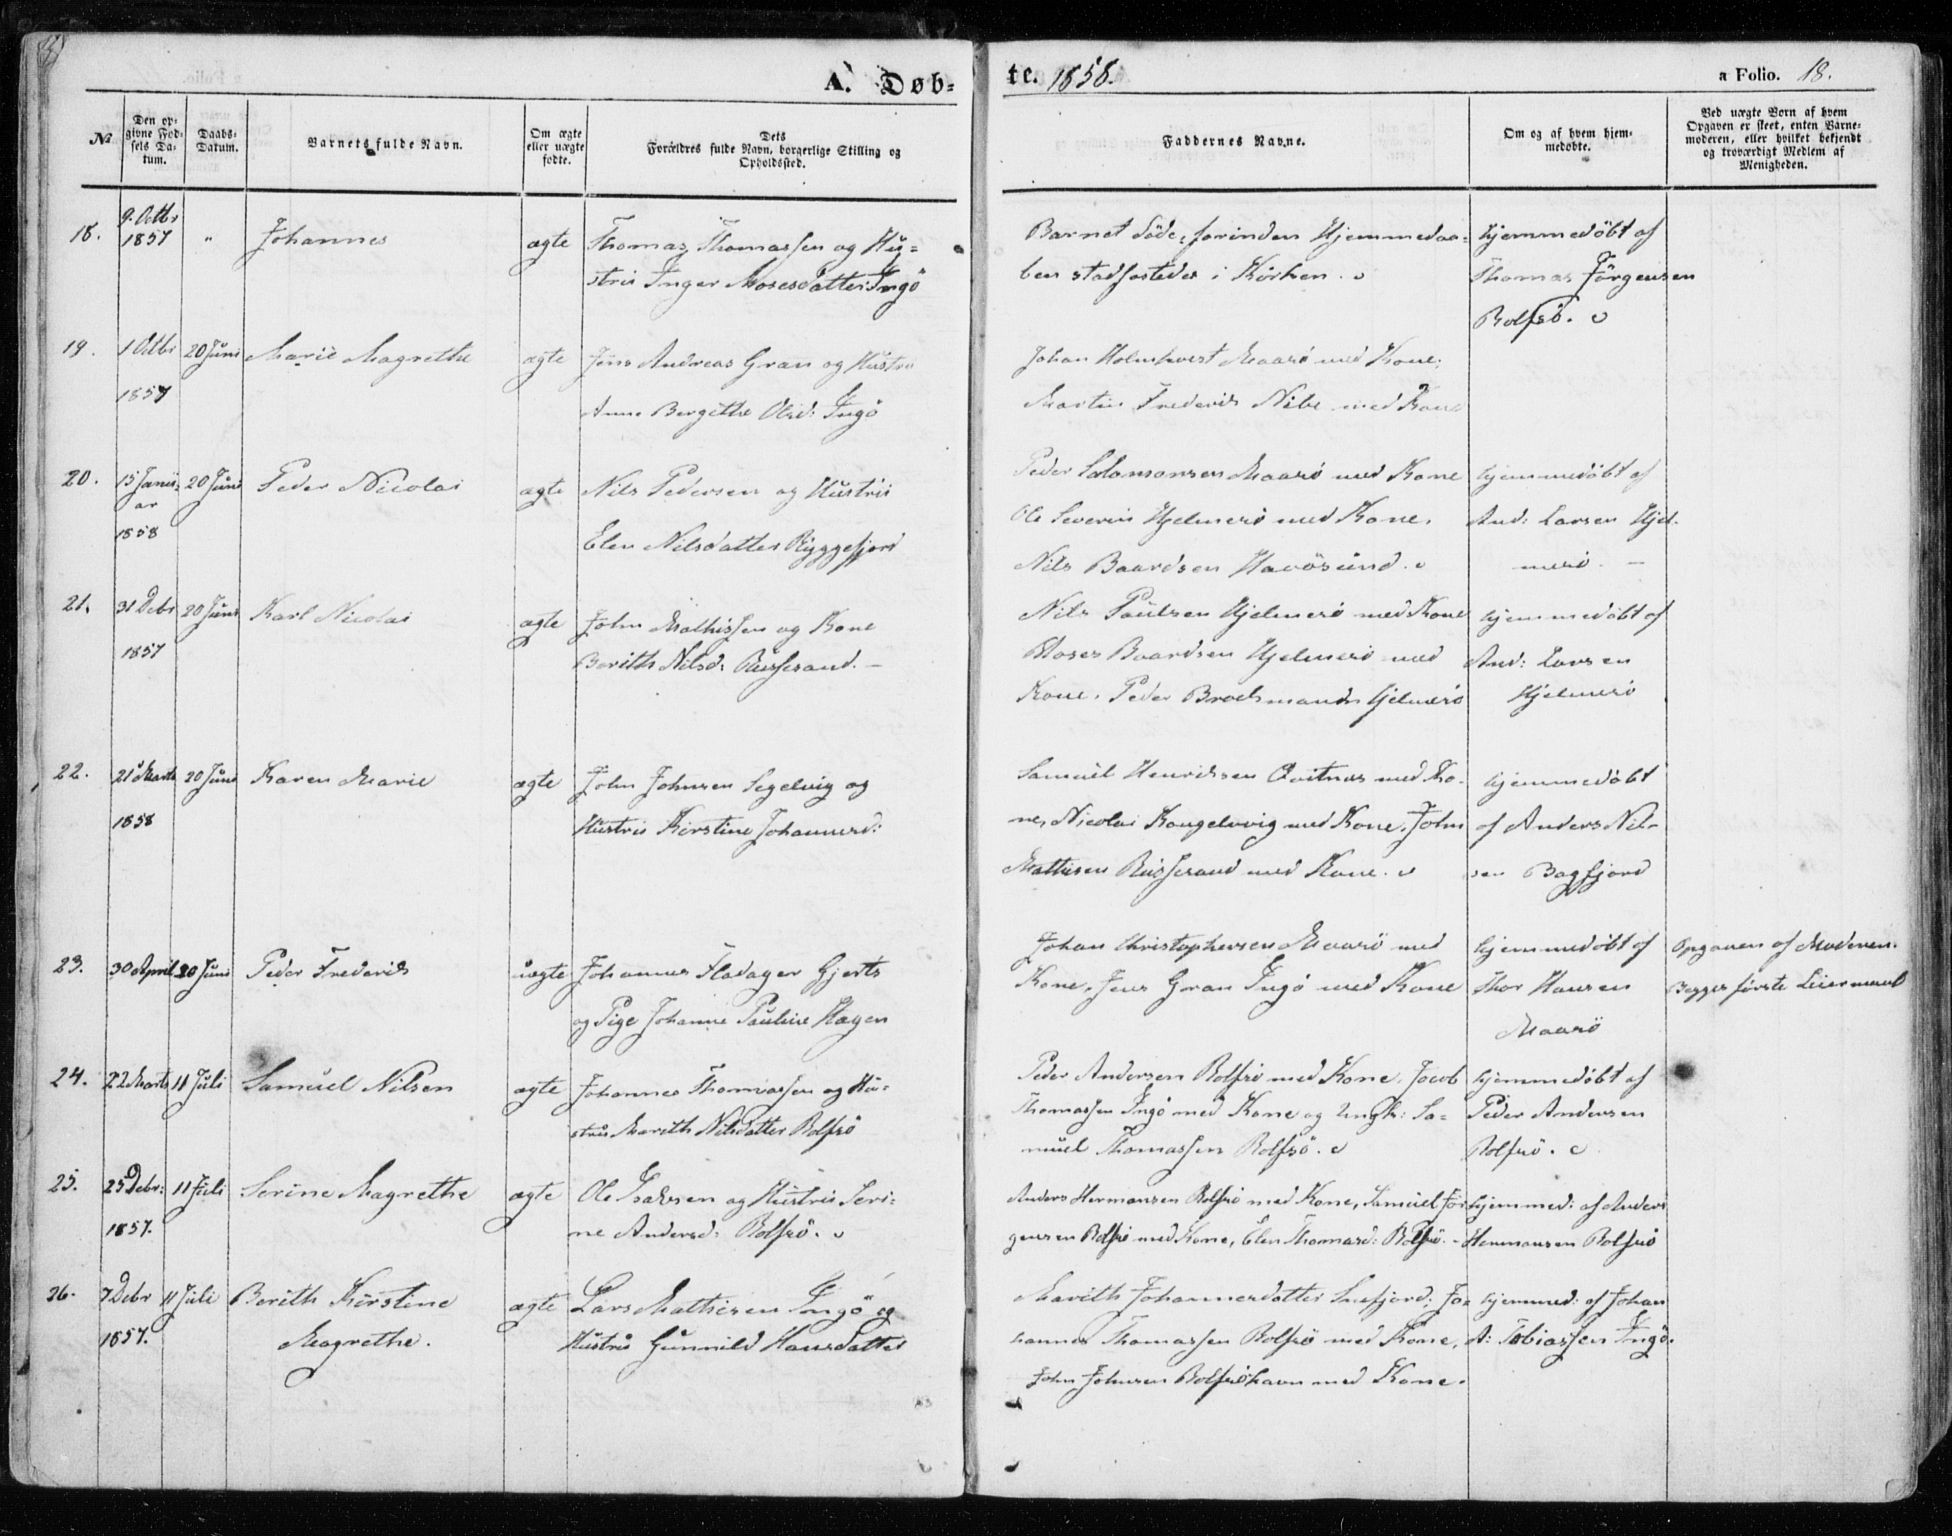 A. Døb=
te. 1858.
a Folio. 18.
№
Den op-
givne Fød-
sels Da-
tum.
Daabs-
Datum.
Barnets fulde Navn.
Om ægte
eller uægte
fødte.
Dets
Forældres fulde Navn, borgerlige Stilling og
Opholdssted.
Faddernes Navne.
Om og af hvem hjem-
medøbte.
Ved uægte Børn af hvem
Opgaven er skeet, enten Barne-
moderen, eller hvilket bekjendt
og troværdigt Medlem af
Menigheden.
18.
9. Octbr
1857
"
Johannes
ægte
Thomas Thomassen og Hu=
stru Inger Mosesdatter Ingö
Barnet döde, forinden Hjemmedaa=
ben stadfæstedes i Kirken.
hjemmedöbt af
Thomas Jörgensen
Rolfsö.
19.
1 Octbr
1857
20 Juni
Marie Magrethe
ægte
Jens Andreas Gran og Hustru
Anne Bergithe Olsd: Ingö
Johan Holmkvist Maasö med Kone,
Martin Frederik Nibe med Kone
20.
15 Janu-
ar
1858
20 Juni
Peder Nicolai
ægte
Nils Pedersen og Hustru
Elen Nilsdatter Ryggefjord
Peder Salamonsen Maasö med Kone
Ole Severin Hjelmesö med Kone,
Nils Baardsen Havösund.
hjemmedöbt af
And: Larsen Hjel-
mesö. -
21.
31 Debr
1857
20 Juni
Karl Nicolai
ægte
John Mathissen og Kone
Berith Nilsd: Russesund. -
Nils Paulsen Hjelmesö med Kone
Moses Baardsen Hjelmesö med
Kone, Peder Brochmands Hjelmesö
hjemmedöbt af
And: Larsen
Hjelmesö
22.
21 Marts
1858
20 Juni
Karen Marie
ægte
John Johnsen Segelvig og
Hustru Kirstine Johannesd:
Samuel Henriksen Qvitnes med Ko-
ne, Nicolai Kongelvvig med Kone, John
Mathisen Russesund med Kone.
hjemmedöbt
af Anders Nil-
sen Bagfjord
23.
30 April
20 Juni
Peder Frederik
uægte
Johannes Fladager Gjerts
og Pige Johanne Pauline Hagen
Johan Christophersen Maasö med
Kone, Jens Gran Ingö med Kone
hjemmedöbt af
Thor Hansen
Maasö
Opgaven af Moderen.
Begges förste Leiermaal
24.
22 Marts
11 Juli
Samuel Nilsen
ægte
Johannes Thomassen og Hu-
stru Marith Nilsdatter Rolfsö
Peder Andersen Rolfsö med Kone, Jacob
Thomassen Ingö med Kone og Ungk: Sa=
muel Thomassen Rolfsö.
hjemmedöbt af
Peder Andersen
Rolfsö.
25.
25 Debr:
1857.
11 Juli
Serine Magrethe
ægte
Ole Isaksen og Hustru Seri-
ne Andersd: Rolfsö.
Anders Hermansen Rolfsö med Kone, Samuel Jör
gensen Rolfsö med Kone, Elen Thomasd: Rolfsö. -
hjemmed: af Anders
Hermansen Rolfsö
26.
7 Debr
1857.
11 Juli
Berith Kirstine
Magrethe.
ægte
Lars Mathisen Ingö og
Hustru Gunnild Hansdatter
Marith Johannesdatter Snefjord, Jo=
hannes Thomassen Rolfsö med Kone,
John Johnsen Rolfsöhavn med Kone.
hjemmed: af Johan
A: Tobiassen Ingö.